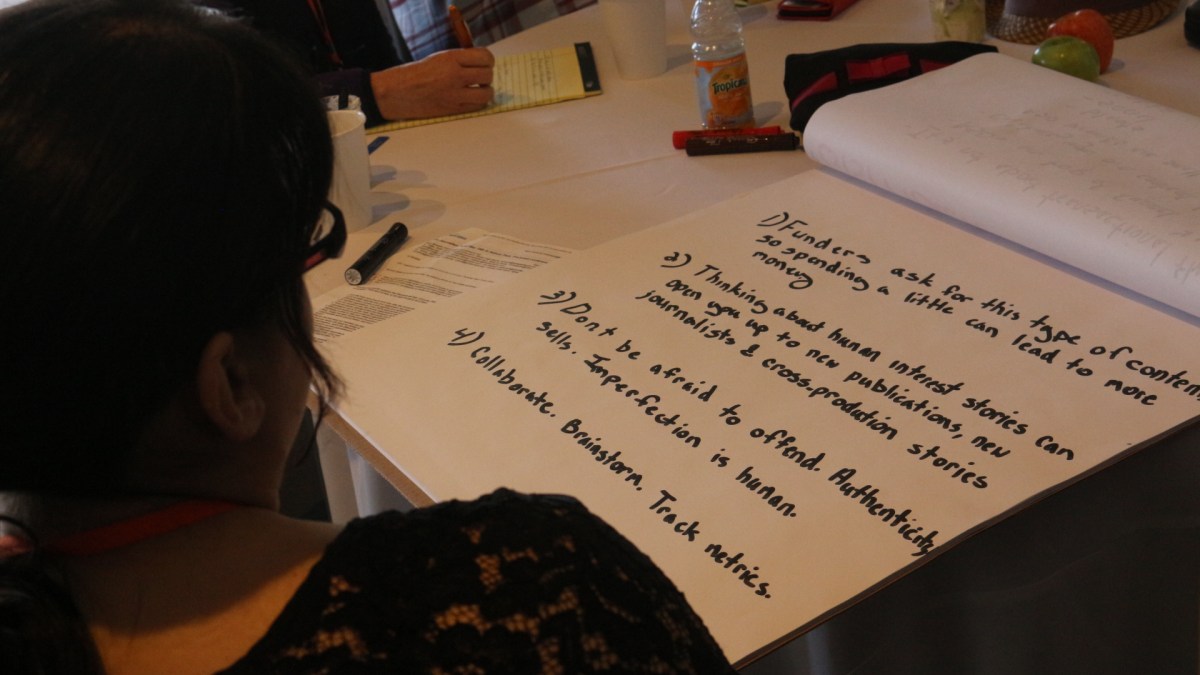 1) Funders ask for this type of content
so spending a little can lead to more
money
2) Thinking about human interest stories can
open you up to new publications, new
journalists & cross-prodution stories
3) Don't be afraid to offend. Authenticity
sells. Imperfection is human.
4) Collaborate. Brainstorm. Track metrics.
Tropicana